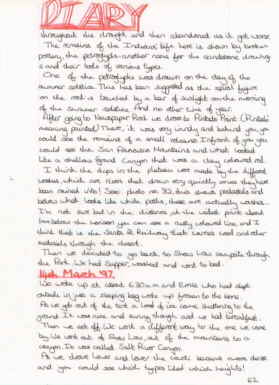 DIARY
throughout the drought and then abandoned as it got worse.
The remains of the Indians' life here is shown by broken
pottery, the petroglyphs - another name for the sandstone drawing
s and their tools of various types.
One of the petroglyphs was drawn on the day of the
summer solstice. This has been suggested as the spiral figure
on the rock is touched by a bar of sunlight on the morning
of the Summer Solstice. And no other time of year.
After going to Newspaper Rock we drove to Pintado Point (Pintado
meaning painted) There, it was very windy and behind you you
could see the remains of a small volcano. Infront of you you
could see the San Francisco Mountains and what looked
like a shallow Grand Canyon that was a clay coloured red.
I think the dips in the plateau were made by the different
which are rivers that down very quickly once they have
been rained into! See photo no. 32, this shows and
below what looks like white paths, these are actually washes.
I'm not sure but in the distance on the about
below the horizon you can see a rusty coloured line and I
think that is the Santa Fe Railway that carries coal and other
materials through the desert.
Then we decided to go back to Show Low campsite through
the Park. We had supper, washed and went to bed.
14th March '97.
We woke up at about 6.30am and Ernie who had slept
outside in just a sleeping bag woke up frozen to the bone!
As we got out of the tent a load of ice came shattering to the
ground. It was nice and sunny though and we had breakfast.
Then we set off. We went a different way to the one we came
by. We went out of Show Low, out of the mountains to a
canyon. It was called Salt River Canyon.
As we drove lower and lower the cacti became more dense
and you could see which types liked which heights!
62